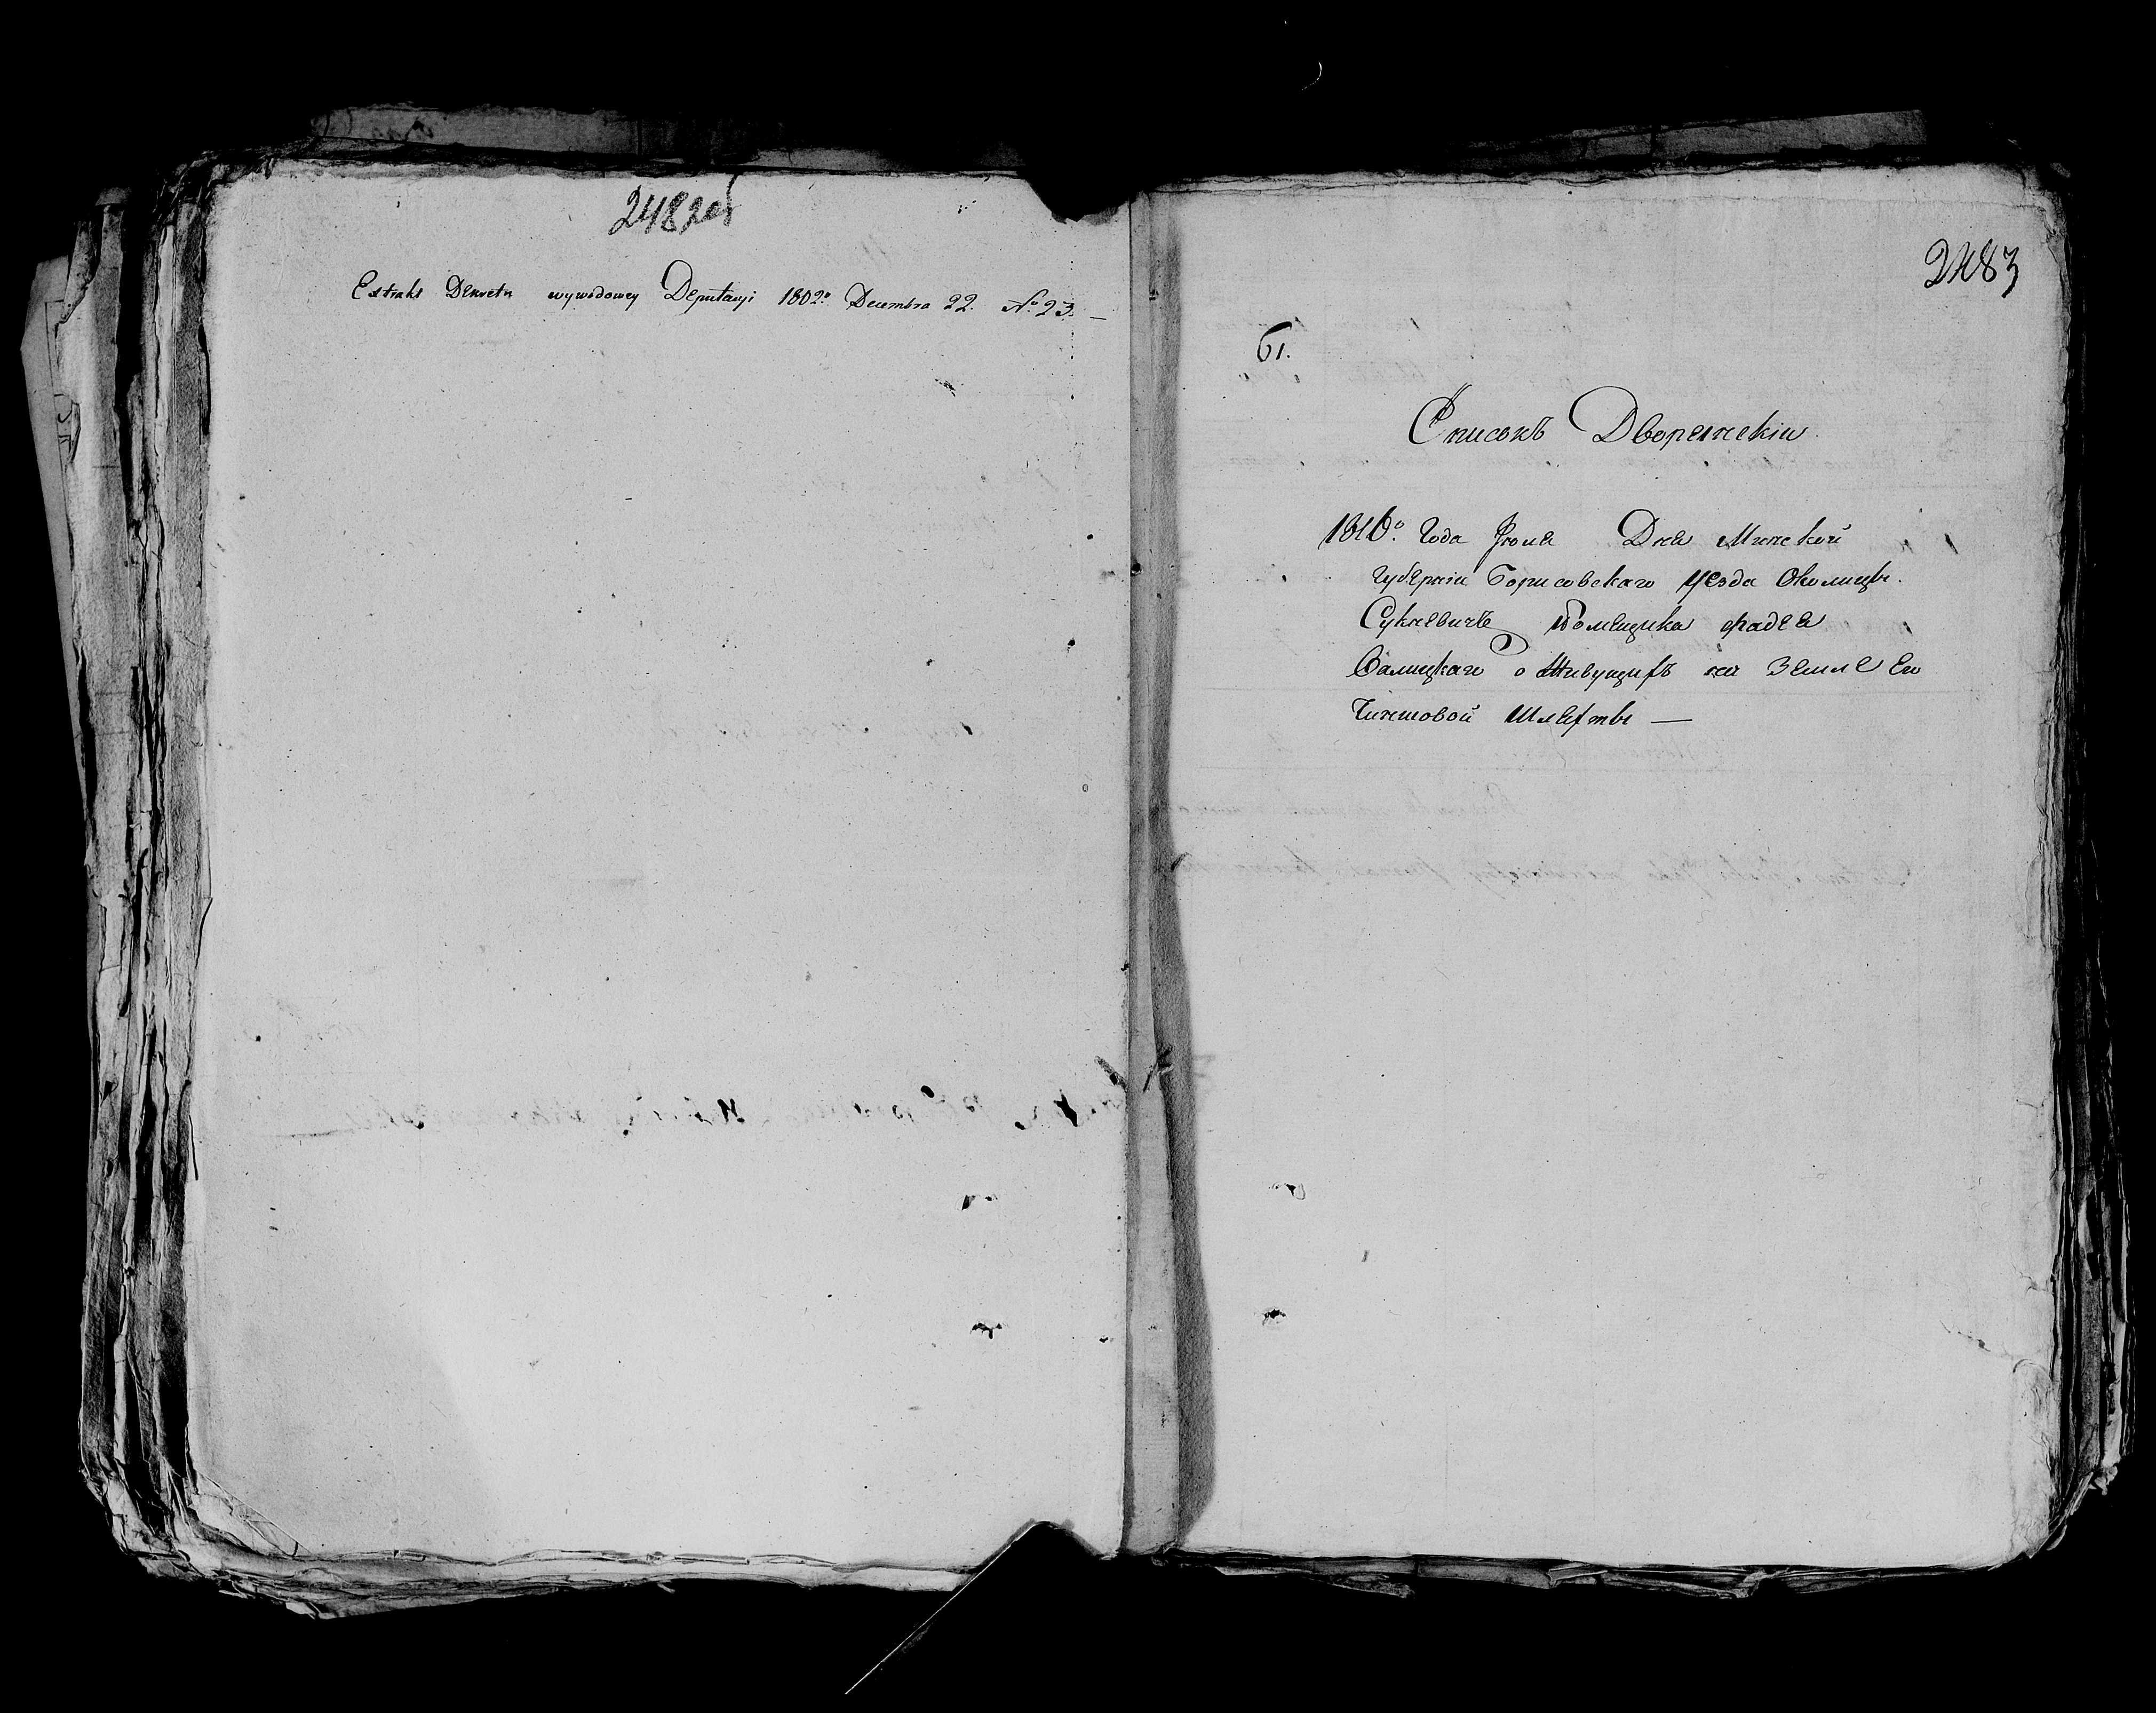 2482об
Extrakt Dekretu wywodowey Deputacyi 1802º Decembra 22. Nº 23. —
2483
61.
Списокъ Дворянскiи
1816º. Года Iюля Дня Минской
Губернiи Борисовскаго уезда Околицы.
Сукневичъ Помещика Фадея
Валицкаго о Живущихъ на Земле Ево
Чиншовой Шляхты —